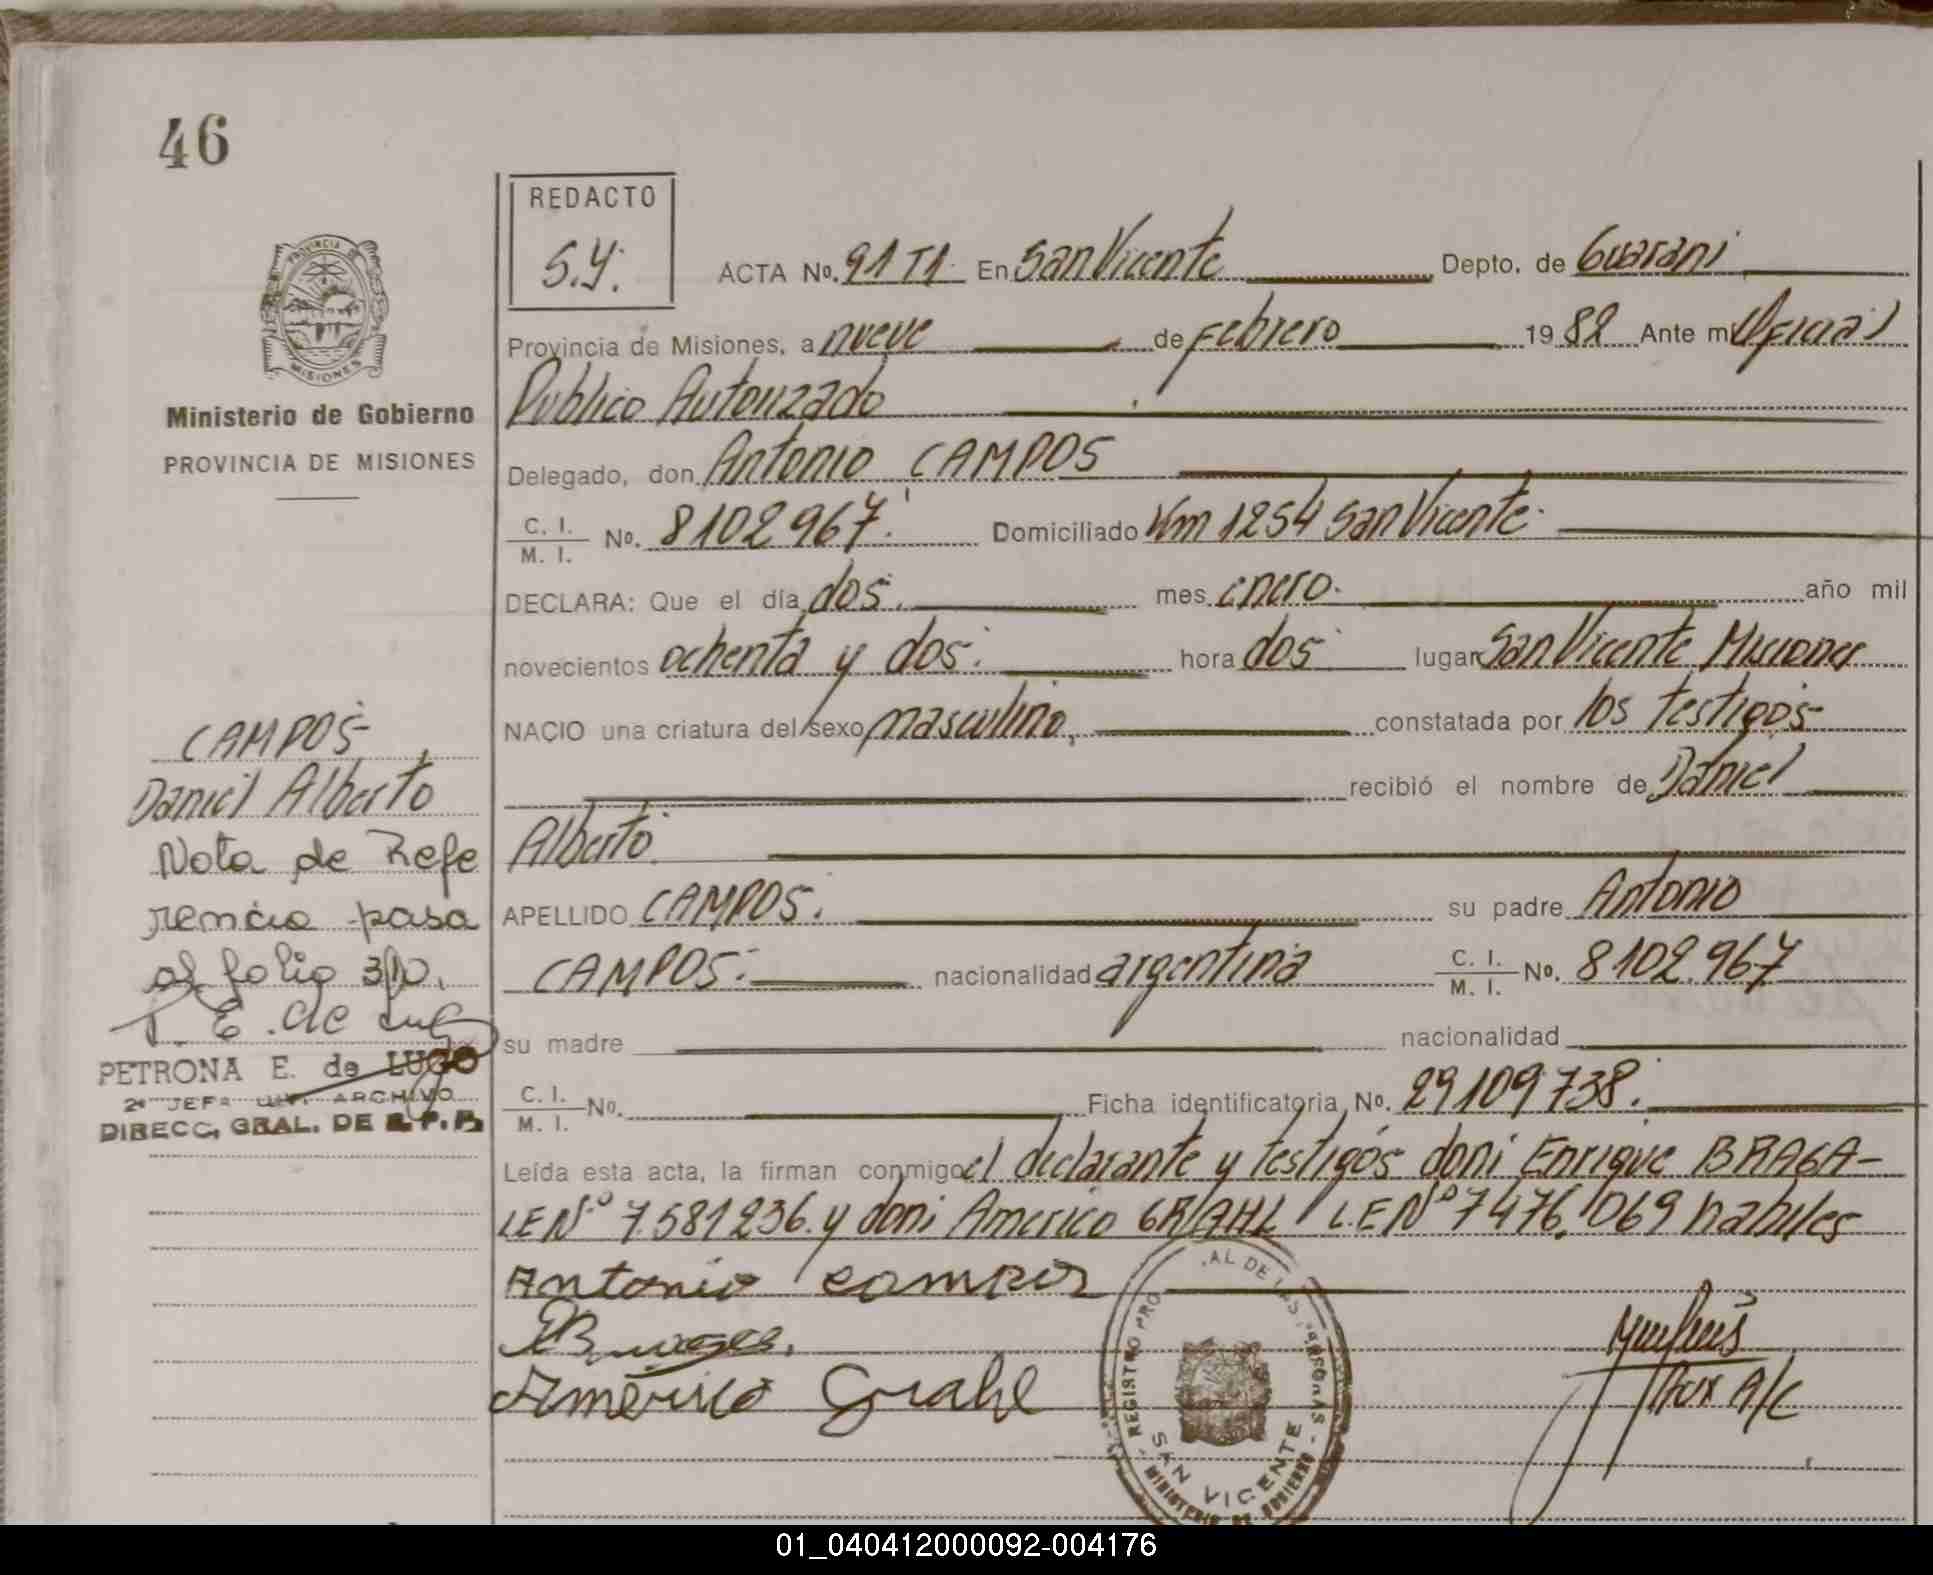 46
PROVINCIA DE
MISIONES
Ministerio de Gobierno
PROVINCIA DE MISIONES
REDACTO
S.Y.
ACTA No. 91 T1. En San Vicente Depto. de Guarani
Provincia de Misiones, a nueve de Febrero 1982 Ante mi Oficial
Publico Autorizado
Delegado, don Antonio CAMPOS
C. I.
M. I. No. 8102967. Domiciliado Km 1254 San Vicente.
DECLARA: Que el día dos. mes enero. año mil
novecientos ochenta y dos. hora dos lugar San Vicente Misiones
NACIO una criatura del sexo masculino, constatada por los testigos
recibió el nombre de Daniel
Alberto
APELLIDO CAMPOS. su padre Antonio
CAMPOS. nacionalidad argentina C. I.
M. I. No. 8102.967
su madre nacionalidad
C. I.
M. I. No. Ficha identificatoria No. 29109738.
Leída esta acta, la firman conmigo el declarante y testigos don: Enrique BRAGA-
LE Nº 7.581236. y don: Americo GRAHL L.E Nº 7476.069 habiles
Antonio campos
Américo Grahl
Aux A/C
REGISTRO PRO AL DE LAS PERSONAS
SAN VICENTE
MINISTERIO DE GOBIERNO
CAMPOS
Daniel Alberto
Nota de Refe
rencia pasa
al folio 310.
P. E. de Lugo
PETRONA E. de LUGO
2º JEFE ARCHIVO
DIRECC. GRAL. DE R. P. P.
01_040412000092-004176